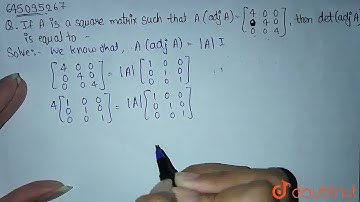 645095267
Q. If A is a square matrix such that A (adj A) = [4 0 0 0 4 0 0 0 4], then det(adj A)
is equal to -
Solve:- We know that, A (adj A) = |A| I
[4 0 0 0 4 0 0 0 4] = |A| [1 0 0 0 1 0 0 0 1]
4 [1 0 0 0 1 0 0 0 1] = |A| [1 0 0 0 1 0 0 0 1]
doubtnut